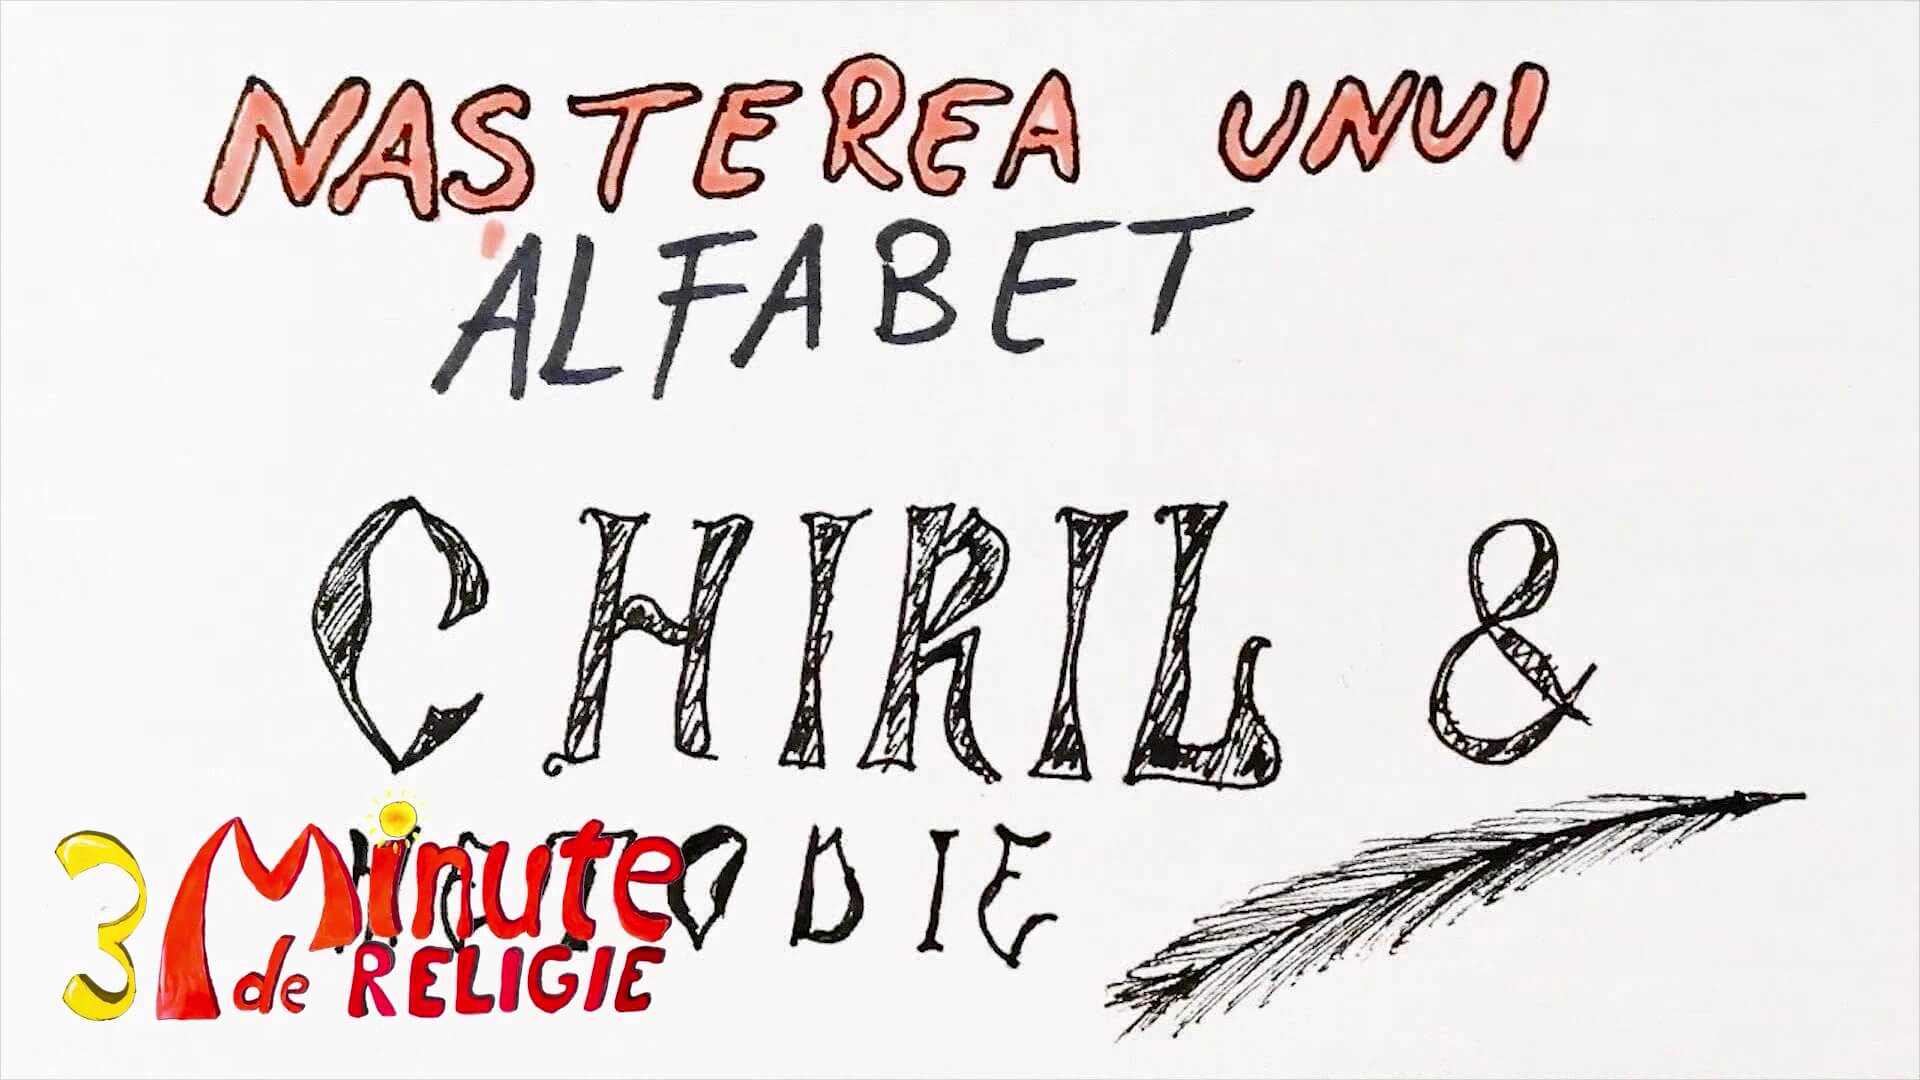 NAȘTEREA UNUI
ALFABET
CHIRIL &
METODIE
3 Minute
de RELIGIE